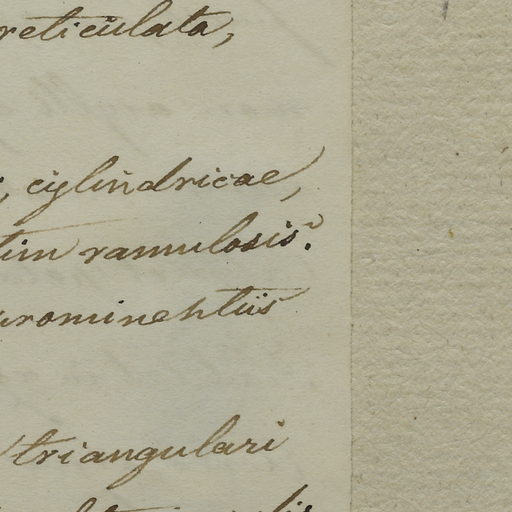 reticulata,
, cylindricae,
tim ramulosis.
prominentiis
triangulari